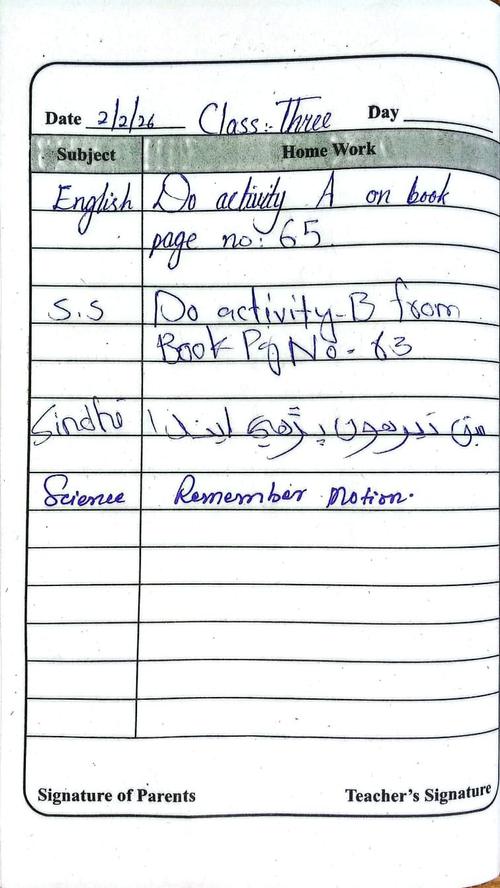 Date 2/2/26 Class:- Three Day
Subject Home Work
English Do activity A on book
page no: 65.
S.S Do activity-B from
Book Pg No - 63
Sindhi سبق تيرهون پڙهي ايندا
Science Remember Motion.
Signature of Parents Teacher's Signature